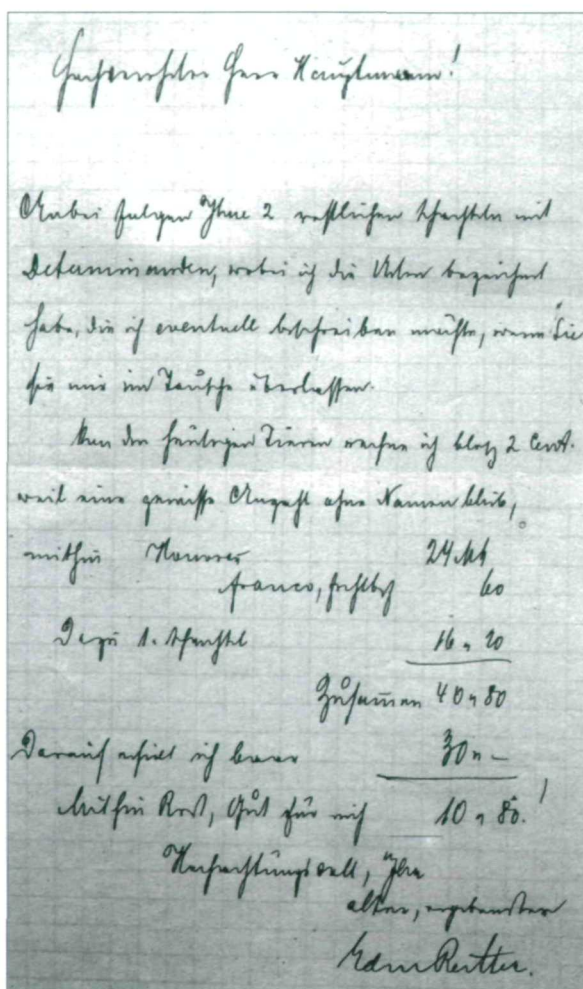 Hochverehrter Herr Hauptmann!
Anbei folgen Ihre 2 restlichen Schachteln mit
Determinanden, wobei ich die Arten bezeichnet
habe, die ich eventuell beschreiben möchte, wenn Sie
sie mir im Tausche überlassen.
Von den heutigen Tieren rechne ich bloß 2 Cent.
weil eine gewisse Anzahl ohne Namen blieb,
mithin Honorar 24 Mk
franco, 60
Dazu 1. Schachtel 16 " 20
Zusammen 40 " 80
Darauf erhielt ich baar 30 " –
Mithin Rest, Gut für mich 10 " 80.!
Hochachtungsvoll, Ihr
alter, ergebenster
Edm Reitter.